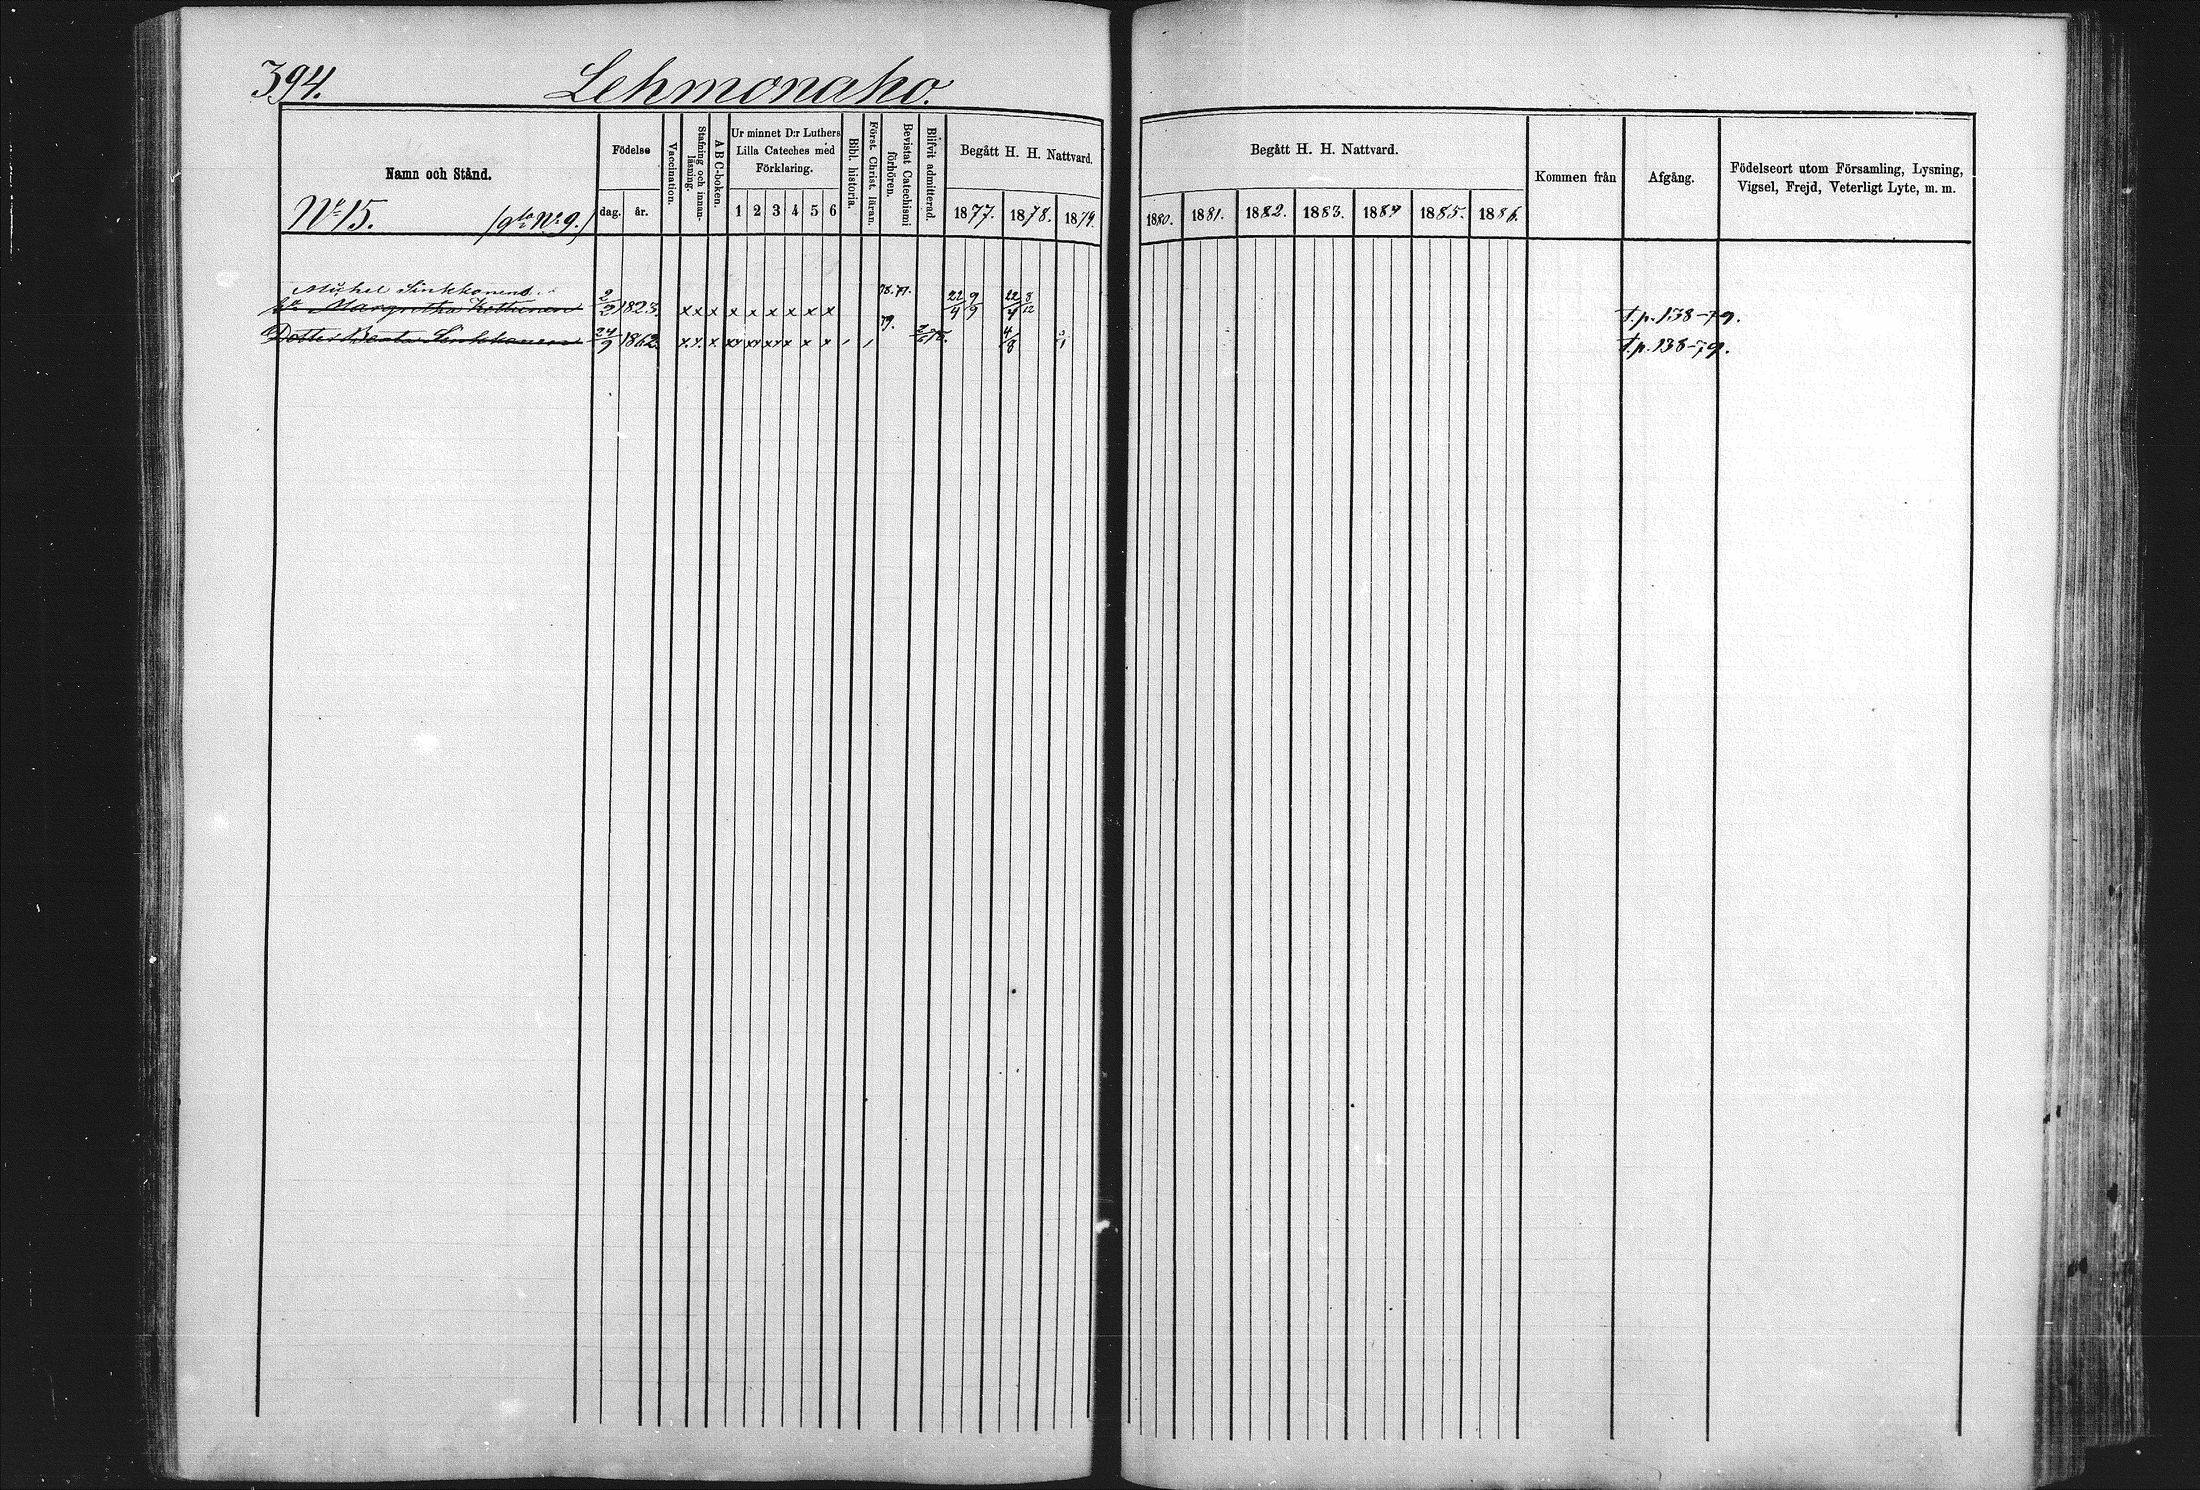 394. Lehmonaho.
Namn och Stånd.
Nº 15. (gla Nº 9.)
Födelse
dag. år.
Vaccination.
Stafning och innanläsning.
A B C-boken.
Ur minnet D:r Luthers
Lilla Cateches med
Förklaring.
1 2 3 4 5 6
Bibl. historia.
Först. Christ. läran.
Bevistat Catechismi
förhören.
Blifvit admitterad.
Begått H. H. Nattvard.
1877. 1878. 1879.
Begått H. H. Nattvard.
1880. 1881. 1882. 1883. 1884 1885. 1886.
Kommen från
Afgång.
Födelseort utom Församling, Lysning,
Vigsel, Frejd, Veterligt Lyte, m. m.
Michel Sinkkonens
Margretha Kettunen 2/2 1823. x x x x x x x x x 78. 77. 22/4 9/9 22/4 8/12 t.p. 138-79.
Dotter Beata Sinkkonen 24/9 1862. x x x xx xx xx x x x 79. 4/8 t.p. 138-79.